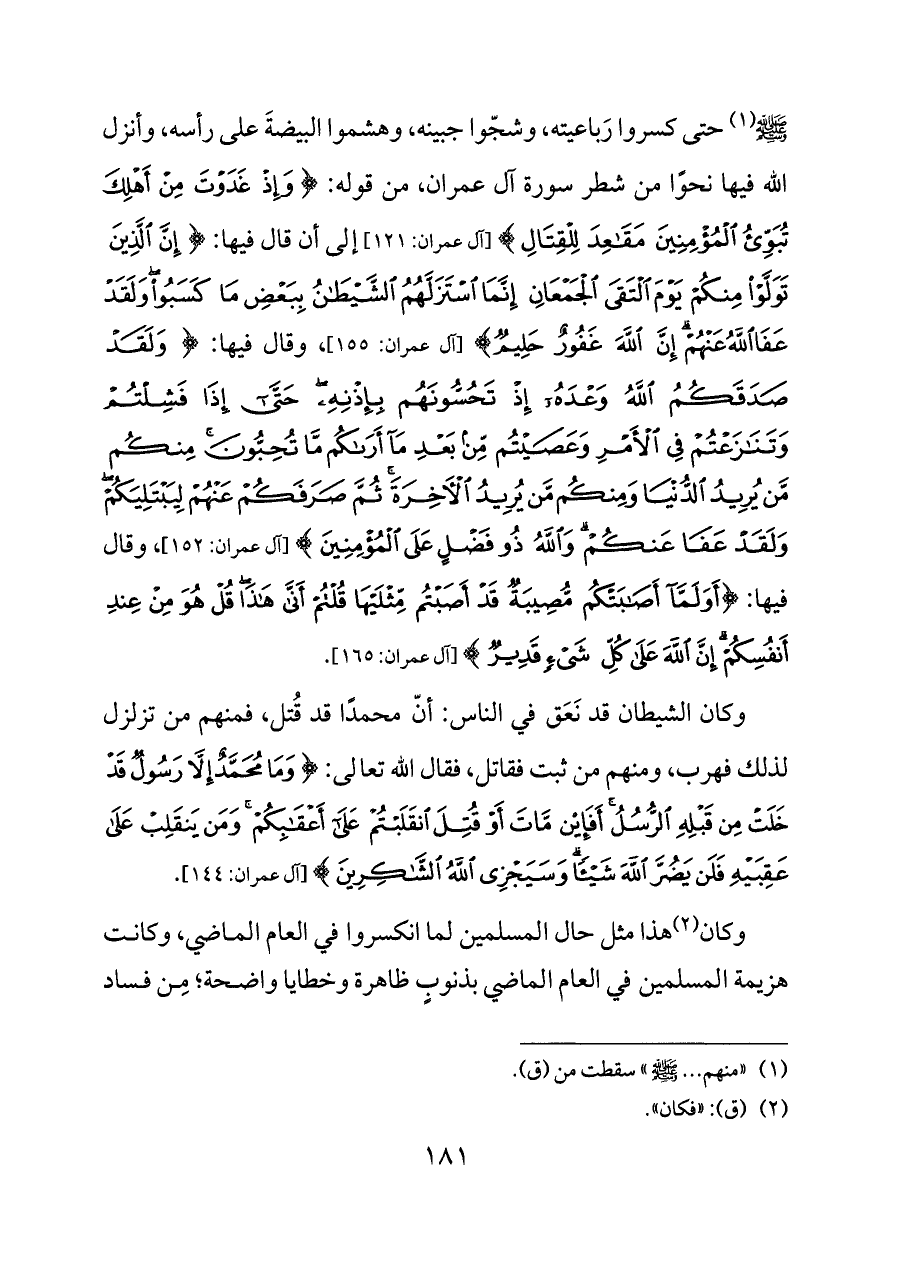 ﷺ(١) حتى كسروا رَباعيته، وشجّوا جبينه، وهشموا البيضةَ على رأسه، وأنزل
الله فيها نحوًا من شطر سورة آل عمران، من قوله: ﴿ وَإِذْ غَدَوْتَ مِنْ أَهْلِكَ
تُبَوِّئُ ٱلْمُؤْمِنِينَ مَقَٰعِدَ لِلْقِتَالِ ﴾ [آل عمران: ١٢١] إلى أن قال فيها: ﴿ إِنَّ ٱلَّذِينَ
تَوَلَّوْا۟ مِنكُمْ يَوْمَ ٱلْتَقَى ٱلْجَمْعَانِ إِنَّمَا ٱسْتَزَلَّهُمُ ٱلشَّيْطَٰنُ بِبَعْضِ مَا كَسَبُوا۟ ۖ وَلَقَدْ
عَفَا ٱللَّهُ عَنْهُمْ ۗ إِنَّ ٱللَّهَ غَفُورٌ حَلِيمٌ ﴾ [آل عمران: ١٥٥]، وقال فيها: ﴿ وَلَقَدْ
صَدَقَكُمُ ٱللَّهُ وَعْدَهُۥٓ إِذْ تَحُسُّونَهُم بِإِذْنِهِۦ ۖ حَتَّىٰٓ إِذَا فَشِلْتُمْ
وَتَنَٰزَعْتُمْ فِى ٱلْأَمْرِ وَعَصَيْتُم مِّنۢ بَعْدِ مَآ أَرَىٰكُم مَّا تُحِبُّونَ ۚ مِنكُم
مَّن يُرِيدُ ٱلدُّنْيَا وَمِنكُم مَّن يُرِيدُ ٱلْأٓخِرَةَ ۚ ثُمَّ صَرَفَكُمْ عَنْهُمْ لِيَبْتَلِيَكُمْ ۖ
وَلَقَدْ عَفَا عَنكُمْ ۗ وَٱللَّهُ ذُو فَضْلٍ عَلَى ٱلْمُؤْمِنِينَ ﴾ [آل عمران: ١٥٢]، وقال
فيها: ﴿أَوَلَمَّآ أَصَٰبَتْكُم مُّصِيبَةٌ قَدْ أَصَبْتُم مِّثْلَيْهَا قُلْتُمْ أَنَّىٰ هَٰذَا ۖ قُلْ هُوَ مِنْ عِندِ
أَنفُسِكُمْ ۗ إِنَّ ٱللَّهَ عَلَىٰ كُلِّ شَىْءٍ قَدِيرٌ ﴾ [آل عمران: ١٦٥].
وكان الشيطان قد نَعَق في الناس: أنّ محمدًا قد قُتل، فمنهم من تزلزل
لذلك فهرب، ومنهم من ثبت فقاتل، فقال الله تعالى: ﴿ وَمَا مُحَمَّدٌ إِلَّا رَسُولٌ قَدْ
خَلَتْ مِن قَبْلِهِ ٱلرُّسُلُ ۚ أَفَإِي۟ن مَّاتَ أَوْ قُتِلَ ٱنقَلَبْتُمْ عَلَىٰٓ أَعْقَٰبِكُمْ ۚ وَمَن يَنقَلِبْ عَلَىٰ
عَقِبَيْهِ فَلَن يَضُرَّ ٱللَّهَ شَيْـًٔا ۗ وَسَيَجْزِى ٱللَّهُ ٱلشَّٰكِرِينَ ﴾ [آل عمران: ١٤٤].
وكان(٢) هذا مثل حال المسلمين لما انكسروا في العام الماضي، وكانت
هزيمة المسلمين في العام الماضي بذنوبٍ ظاهرة وخطايا واضحة؛ مِن فساد
(١) «منهم... ﷺ» سقطت من (ق).
(٢) (ق): «فكان».
١٨١